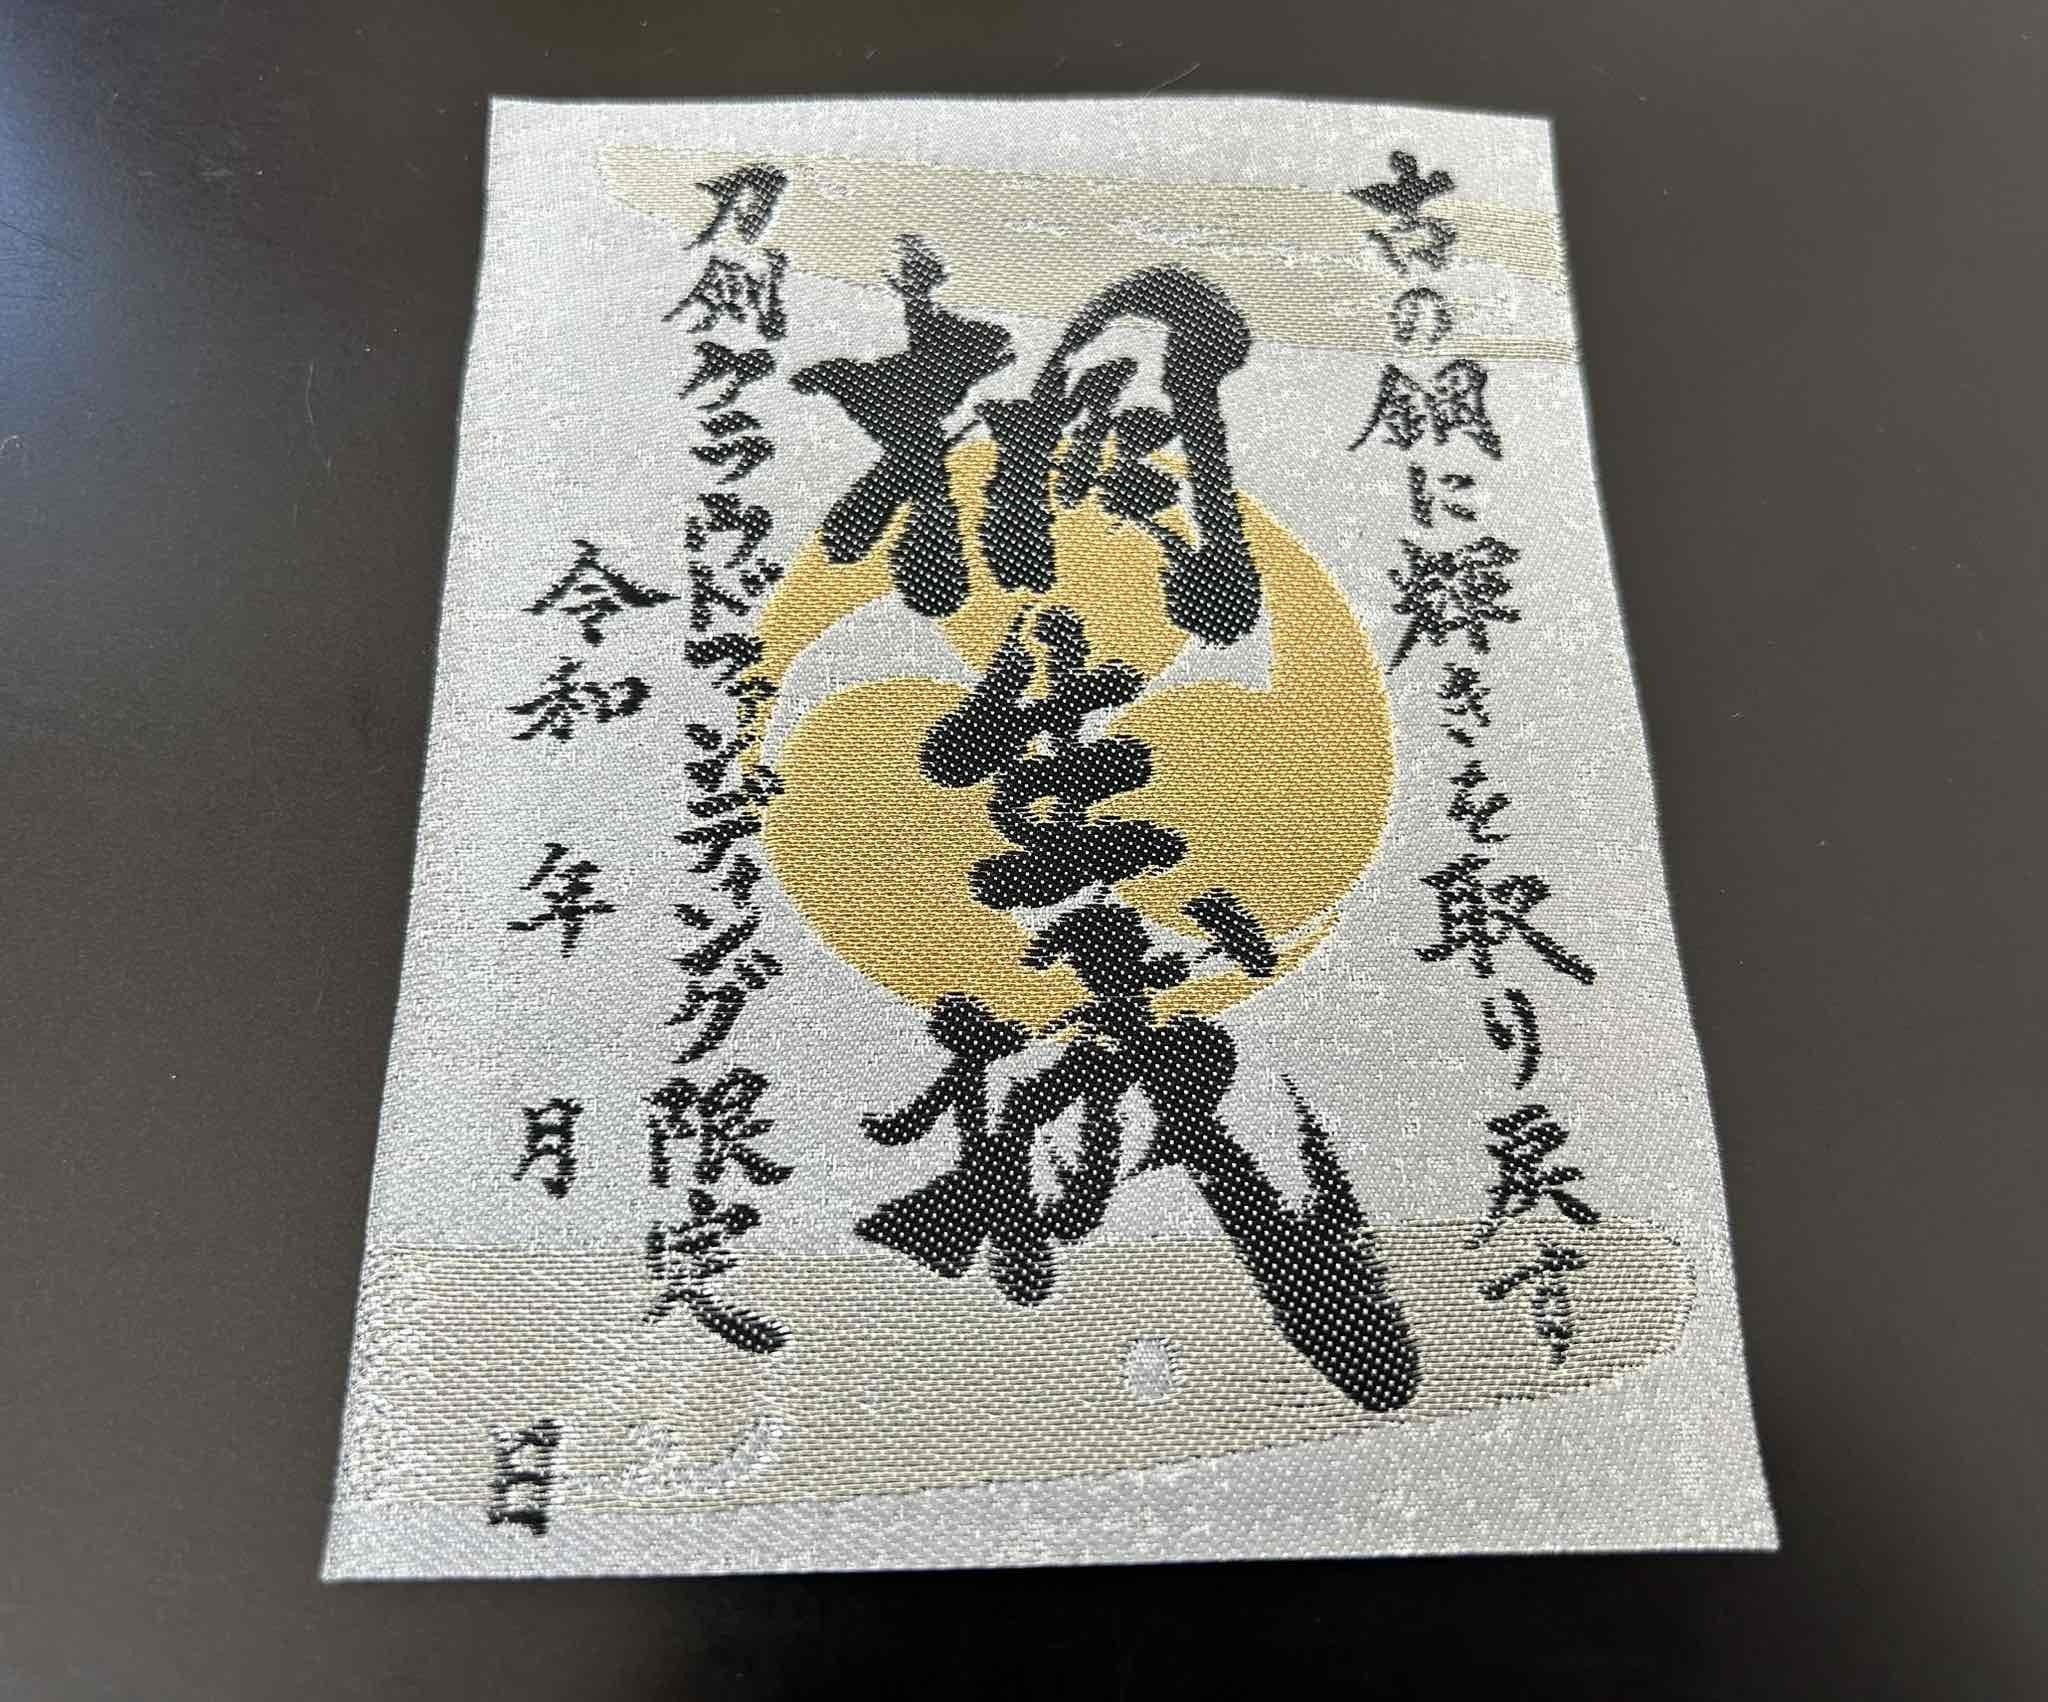 古の鋼に輝きを取り戻す
刀剣クラウドファンディング限定
令和 年 月 日